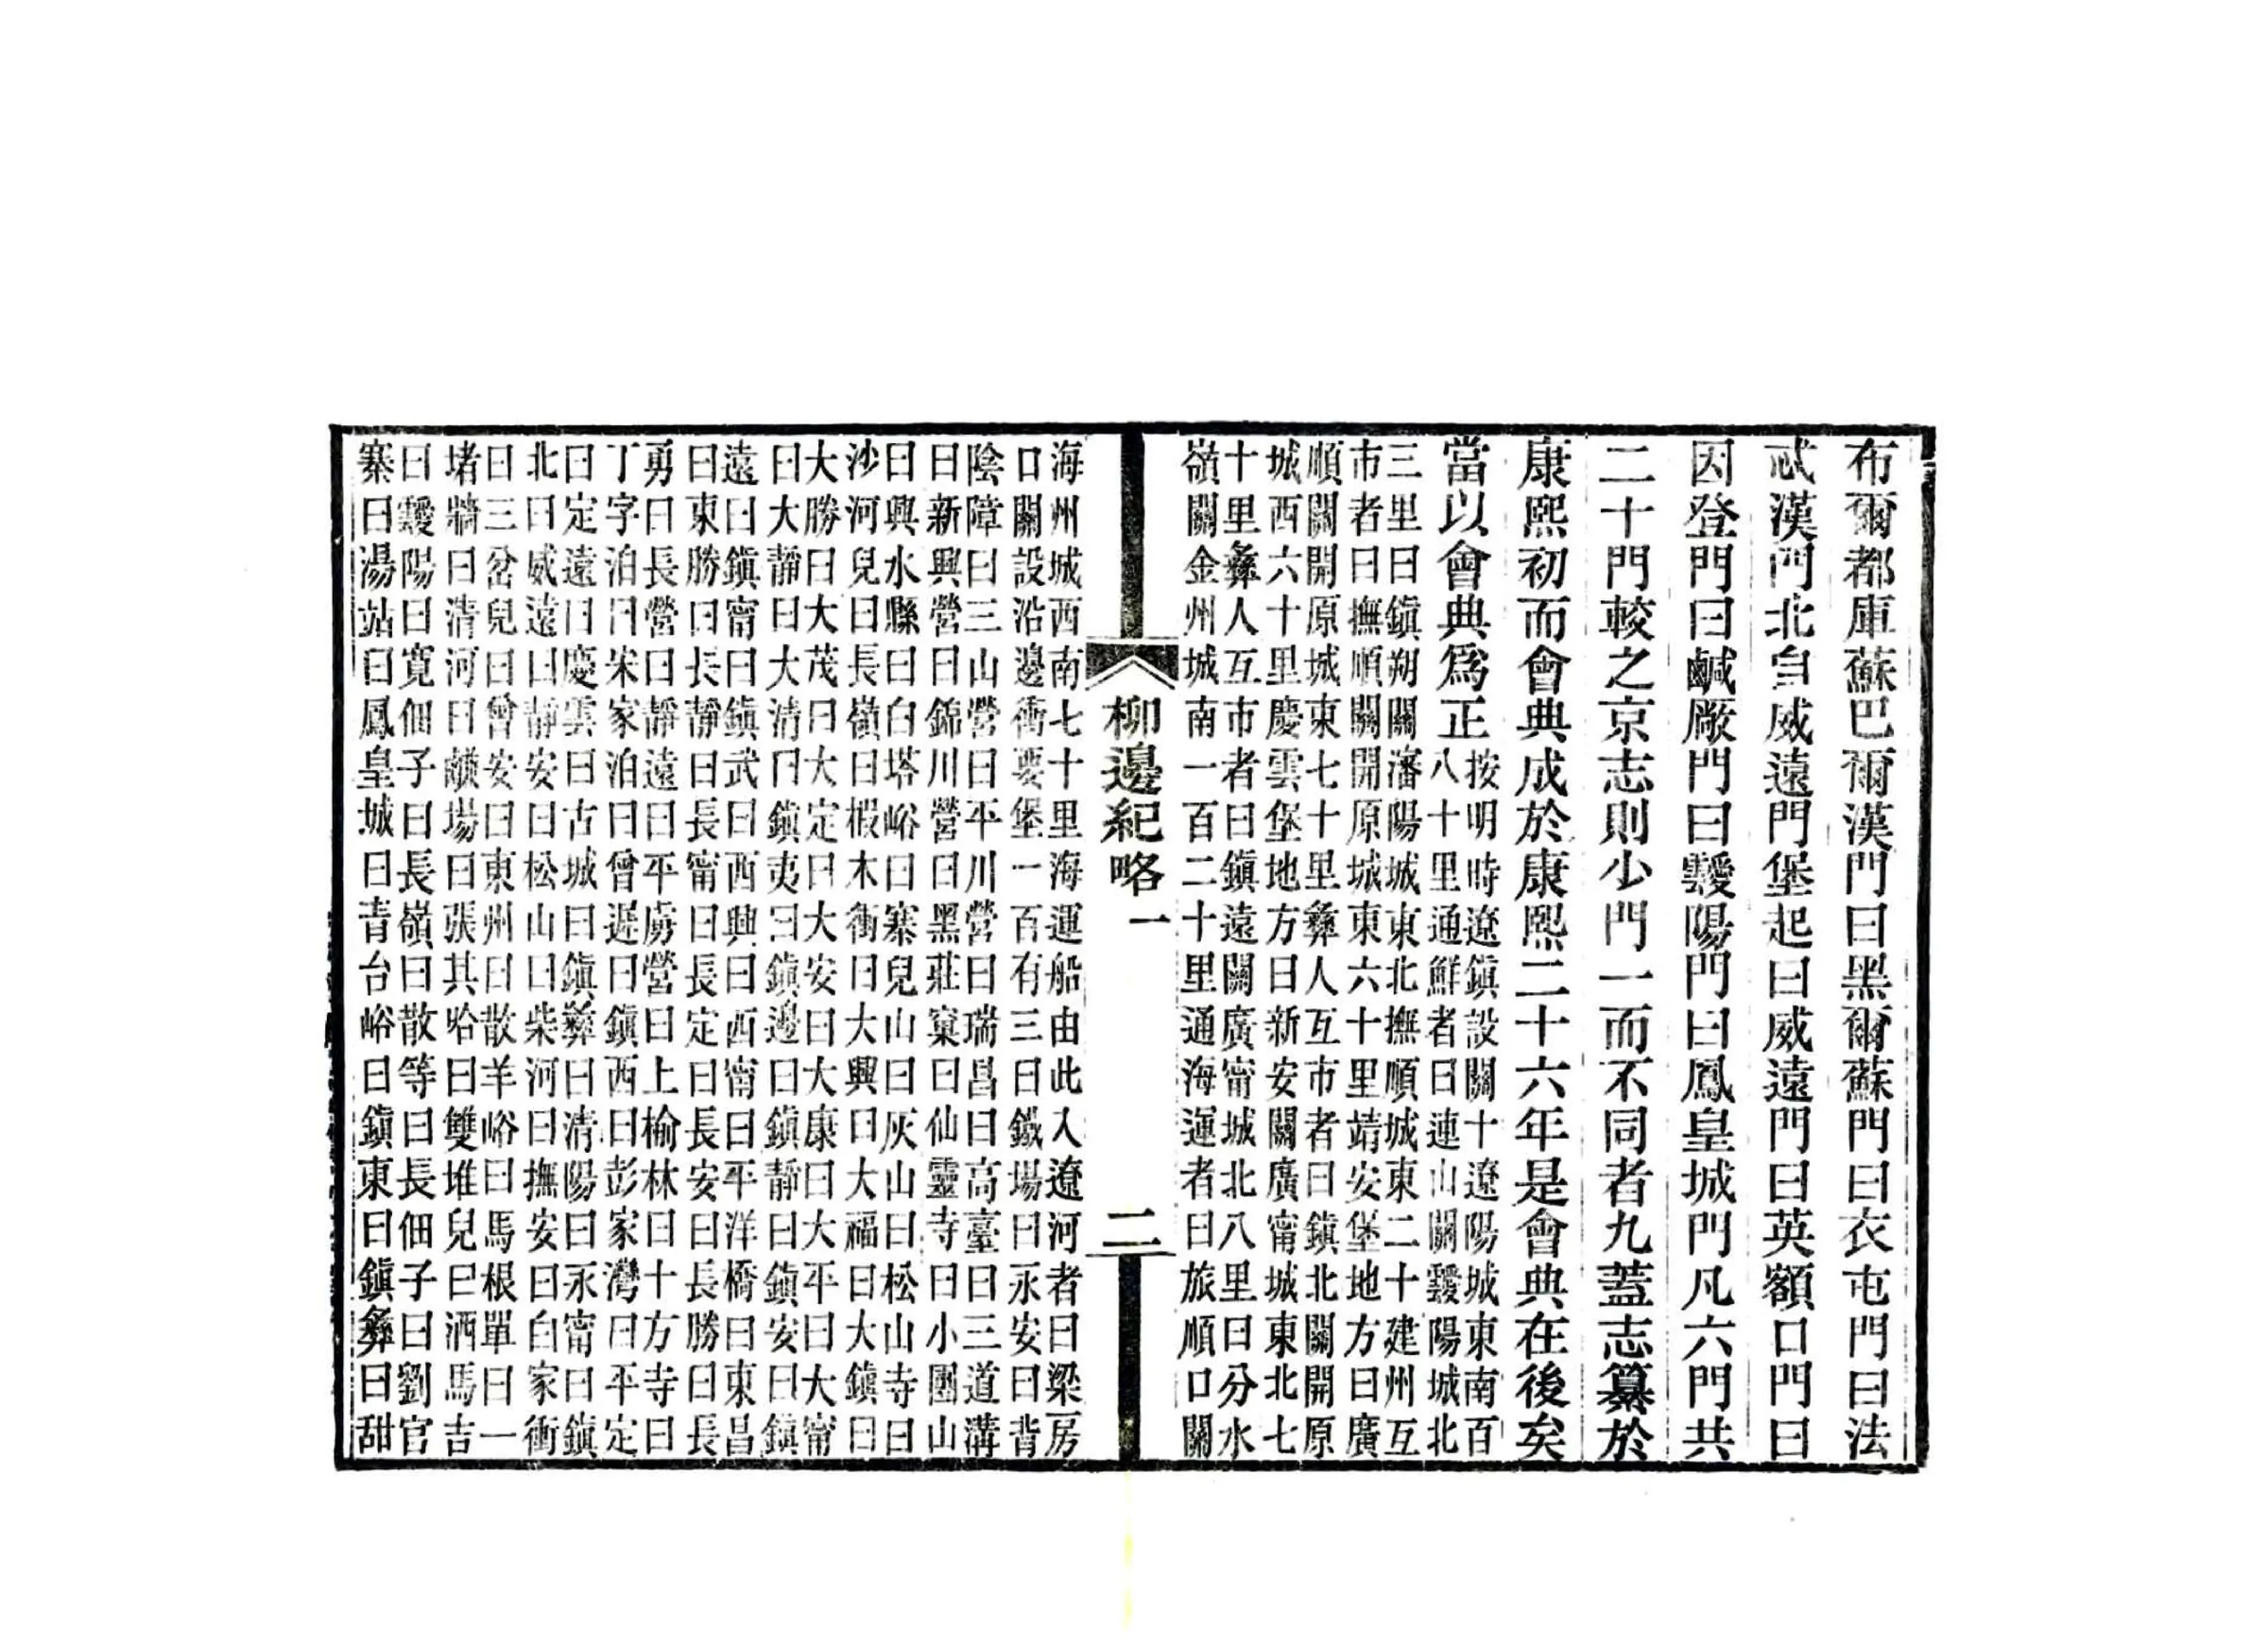 布爾都庫蘇巴爾漢門曰黑爾蘇門曰衣屯門曰法
忒漢門北自威遠門堡起曰威遠門曰英額口門曰
因登門曰鹹厰門曰靉陽門曰鳳皇城門凡六門共
二十門較之京志則少門一而不同者九蓋志纂於
康熙初而會典成於康熙二十六年是會典在後矣
當以會典爲正
按明時遼鎮設關十遼陽城東南百
八十里通鮮者曰連山關靉陽城北
三里曰鎮朔關瀋陽城東北撫順城東二十建州互
市者曰撫順關開原城東六十里靖安堡地方曰廣
順關開原城東七十里彝人互市者曰鎮北關開原
城西六十里慶雲堡地方曰新安關廣甯城東北七
十里彝人互市者曰鎮遠關廣甯城北八里曰分水
嶺關金州城南一百二十里通海運者曰旅順口關
柳邊紀略一
二
海州城西南七十里海運船由此入遼河者曰梁房
口關設沿邊衝要堡一百有三曰鐵場曰永安曰背
陰障曰三山營曰平川營曰瑞昌曰高臺曰三道溝
曰新興營曰錦川營曰黑莊窠曰仙靈寺曰小團山
曰興水縣曰白塔峪曰寨兒山曰灰山曰松山寺曰
沙河兒曰長嶺曰椵木衝曰大興曰大福曰大鎮曰
大勝曰大茂曰大定曰大安曰大康曰大平曰大甯
曰大靜曰大清曰鎮夷曰鎮邊曰鎮靜曰鎮安曰鎮
遠曰鎮甯曰鎮武曰西興曰西甯曰平洋橋曰東昌
曰東勝曰長靜曰長甯曰長定曰長安曰長勝曰長
勇曰長營曰靜遠曰平虜營曰上榆林曰十方寺曰
丁字泊曰宋家泊曰曾遲曰鎮西曰彭家灣曰平定
曰定遠曰慶雲曰古城曰鎮彝曰清陽曰永甯曰鎮
北曰威遠曰靜安曰松山曰柴河曰撫安曰白家衝
曰三岔兒曰曾安曰東州曰散羊峪曰馬根單曰一
堵牆曰清河曰鹻場曰張其哈曰雙堆兒曰洒馬吉
曰靉陽曰寬佃子曰長嶺曰散等曰長佃子曰劉官
寨曰湯站曰鳳皇城曰青台峪曰鎮東曰鎮彝曰甜